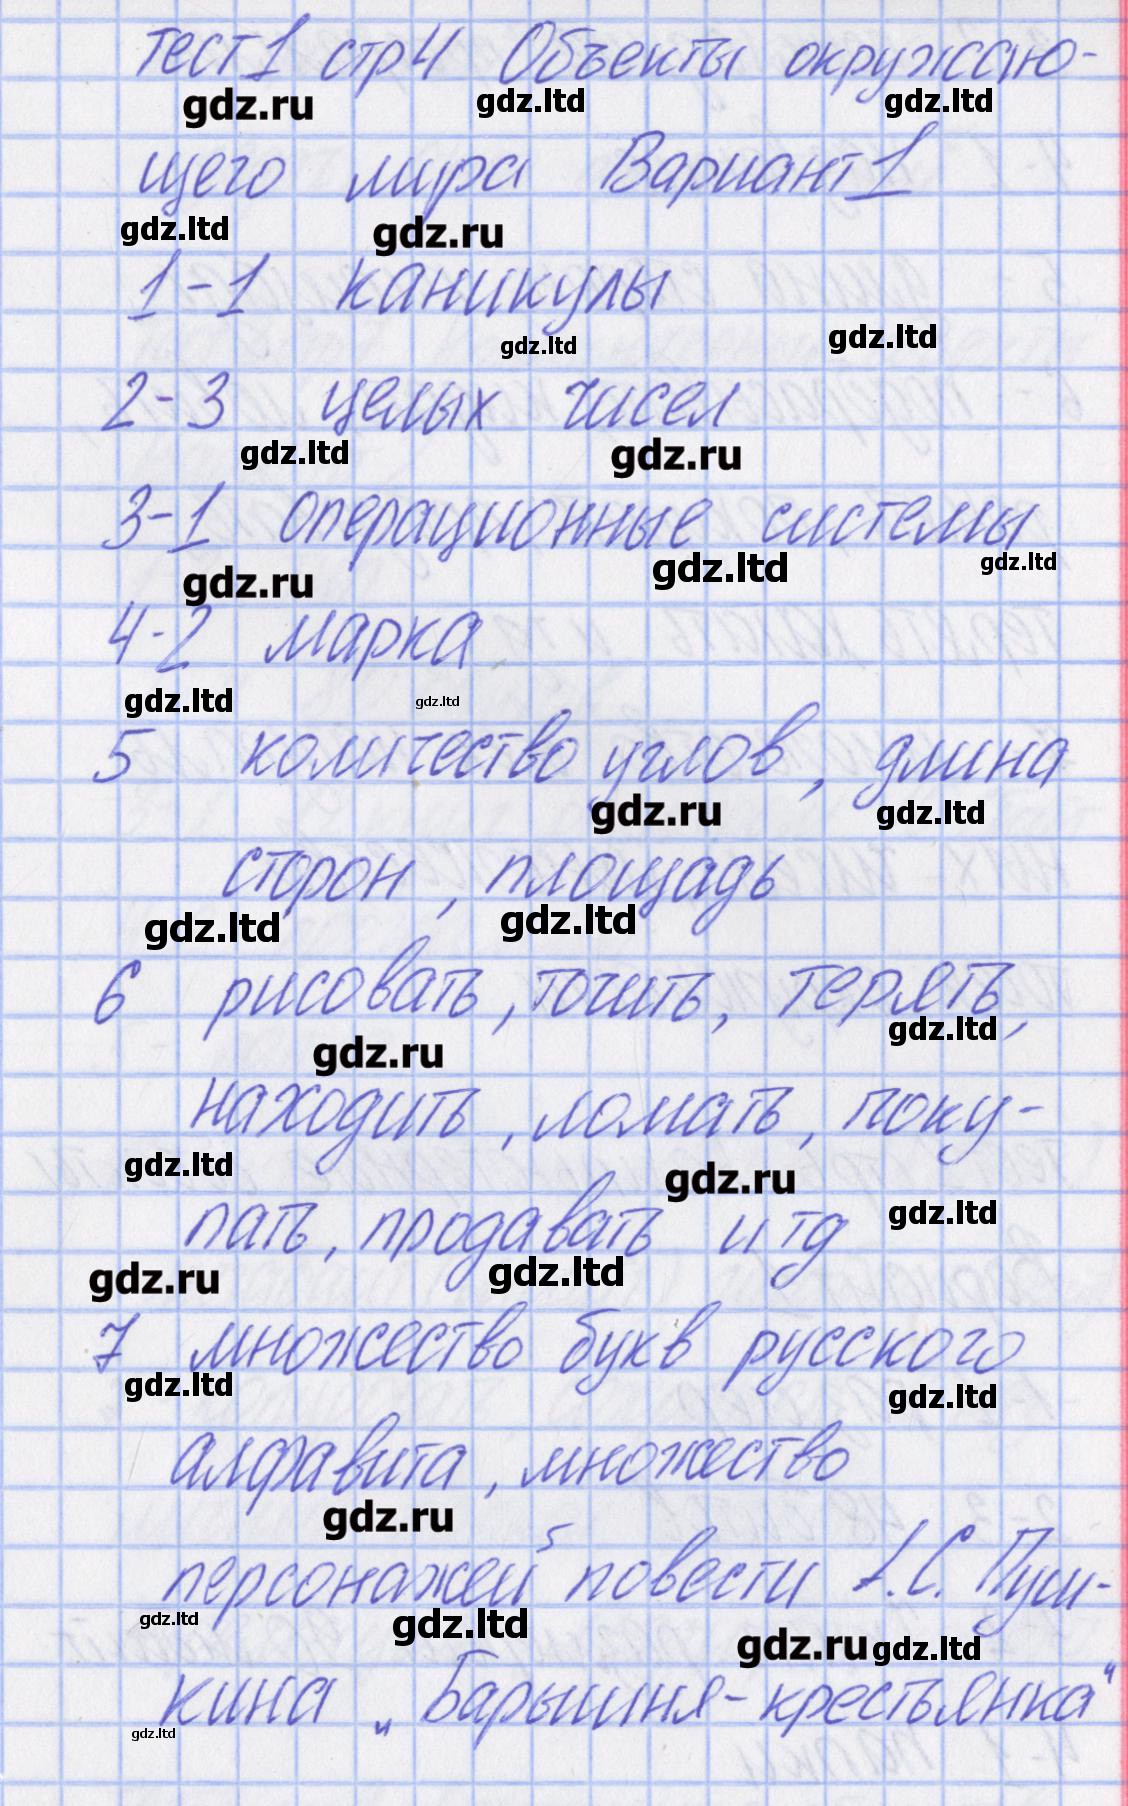 тест1 стр4 Объекты окружаю-
gdz.ru gdz.ltd gdz.ltd
щего мира Вариант 1
gdz.ltd gdz.ru
1-1 каникулы
gdz.ltd gdz.ltd
2-3 целых чисел
gdz.ltd gdz.ru
3-1 операционные системы
gdz.ru gdz.ltd gdz.ltd
4-2 марка
gdz.ltd gdz.ltd
5 количество углов, длина
gdz.ru gdz.ltd
сторон, площадь
gdz.ltd gdz.ltd
6 рисовать, точить, терять,
gdz.ru gdz.ltd
находить, ломать, поку-
gdz.ltd gdz.ru
пать, продавать и тд
gdz.ltd
gdz.ru gdz.ltd
7 множество букв русского
gdz.ltd gdz.ltd
алфавита, множество
gdz.ru
персонажей повести А.С. Пуш-
gdz.ltd gdz.ltd gdz.ru gdz.ltd
кина „Барышня-крестьянка“
gdz.ltd